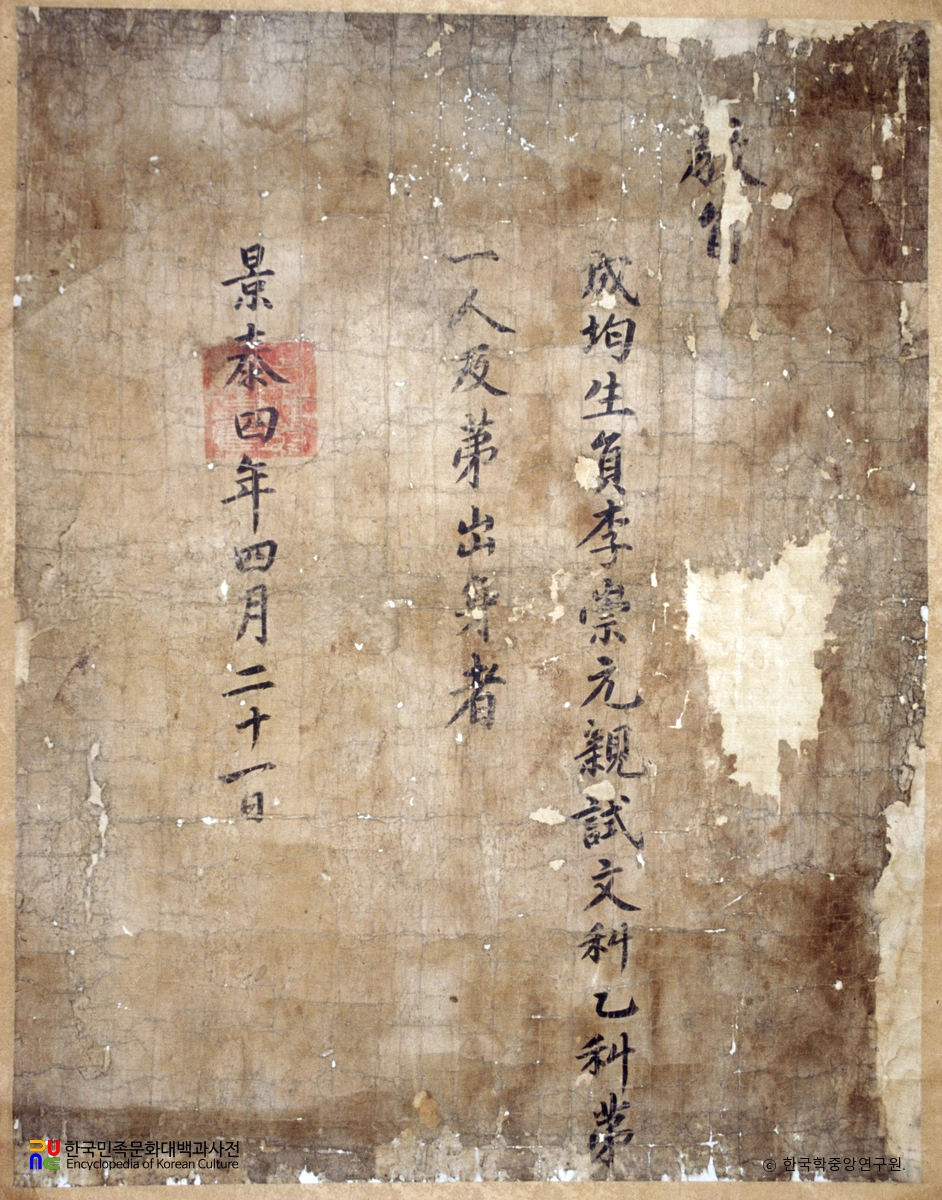 教旨
成均生員李崇元親試文科乙科第
一人及第出身者
景泰四年四月二十一日
한국민족문화대백과사전
Encyclopedia of Korean Culture
© 한국학중앙연구원.